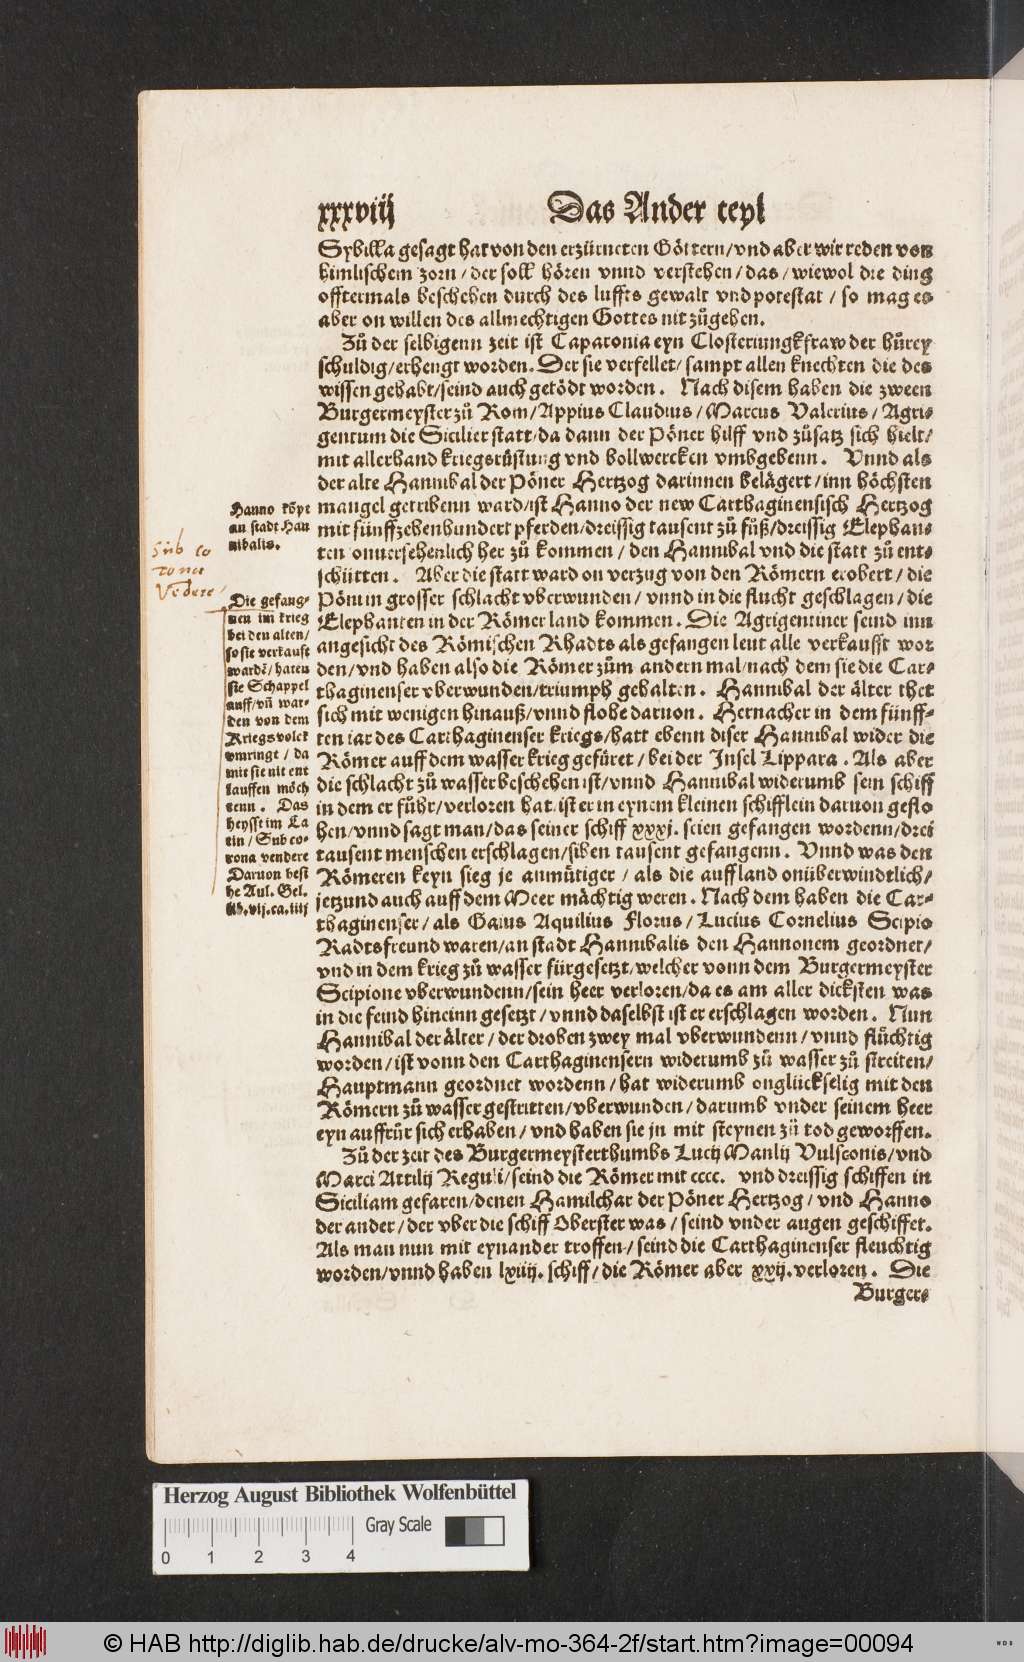 xxxviij Das Ander teyl
Sybilla gesagt hat von den erzürneten Göttern/vnd aber wir reden von
himlischem zorn/der soll hören vnnd verstehen/das/wiewol die ding
offtermals beschehen durch des luffts gewalt vnd potestat/so mag es
aber on willen des allmechtigen Gottes nit zůgehen.
Zů der selbigenn zeit ist Caparonia eyn Closteriungkfraw der hůrey
schuldig/erhengt worden. Der sie verfellet/sampt allen knechten die des
wissen gehabt/seind auch getödt worden. Nach disem haben die zween
Burgermeyster zů Rom/Appius Claudius/Marcus Valerius/Agri-
gentum die Sicilier statt/da dann der Pöner hilff vnd zůsatz sich hielt/
mit allerhand kriegsrüstung vnd bollwercken vmbgebenn. Vnnd als
der alte Hannibal der Pöner Hertzog darinnen belägert/inn höchsten
mangel getribenn ward/ist Hanno der new Carthaginensisch Hertzog
mit fünffzehenhundert pferden/dreissig tausent zů fůß/dreissig Elephan-
ten onuersehenlich her zů kommen/den Hannibal vnd die statt zů ent-
schütten. Aber die statt ward on verzug von den Römern erobert/die
Pöni in grosser schlacht vberwunden/vnnd in die flucht geschlagen/die
Elephanten in der Römer land kommen. Die Agrigentiner seind inn
angesicht des Römischen Rhadts als gefangen leut alle verkaufft wor
den/vnd haben also die Römer zům andern mal/nach dem sie die Car-
thaginenser vberwunden/triumph gehalten. Hannibal der älter thet
sich mit wenigen hinauß/vnnd flohe daruon. Hernacher in dem fünff-
ten iar des Carthaginenser kriegs/hatt ebenn diser Hannibal wider die
Römer auff dem wasser krieg gefüret/bei der Insel Lippara. Als aber
die schlacht zů wasser beschehen ist/vnnd Hannibal widerumb sein schiff
in dem er fůhr/verloren hat/ist er in eynem kleinen schifflein daruon geflo
hen/vnnd sagt man/das seiner schiff xxxj. seien gefangen wordenn/drei
tausent menschen erschlagen/siben tausent gefangenn. Vnnd was den
Römeren keyn sieg je anmütiger/als die auff land onüberwindtlich/
jetzund auch auff dem Meer mächtig weren. Nach dem haben die Car-
thaginenser/als Gaius Aquilius Florus/Lucius Cornelius Scipio
Radtsfreund waren/an stadt Hannibalis den Hannonem geordnet/
vnd in dem krieg zů wasser fürgesetzt/welcher vonn dem Burgermeyster
Scipione vberwundenn/sein heer verloren/da es am aller dicksten was
in die feind hineinn gesetzt/vnnd daselbst ist er erschlagen worden. Nun
Hannibal der älter/der droben zwey mal vberwundenn/vnnd flüchtig
worden/ist vonn den Carthaginensern widerumb zů wasser zů streiten/
Hauptmann geordnet wordenn/hat widerumb onglückselig mit den
Römern zů wasser gestritten/vberwunden/darumb vnder seinem heer
eyn auffrůr sich erhaben/vnd haben sie jn mit steynen zů tod geworffen.
Zů der zeit des Burgermeysterthumbs Lucij Manlij Vulsconis/vnd
Marci Attilij Reguli/seind die Römer mit cccc. vnd dreissig schiffen in
Siciliam gefaren/denen Hamilchar der Pöner Hertzog/vnd Hanno
der ander/der vber die schiff Oberster was/seind vnder augen geschiffet.
Als man nun mit eynander troffen/seind die Carthaginenser fleuchtig
worden/vnnd haben lxiiij. schiff/die Römer aber xxij. verloren. Die
Burger-
Hanno köpt
an stadt Han
nibalis.
Sub co
rona
Vēdere
Die gefang-
nen im krieg
bei den alten/
so sie verkaufft
wardē/haten
sie Schappel
auff/vñ war-
den von dem
Kriegsvolck
vmringt/da
mit sie nit ent
lauffen möch
tenn. Das
heysst im La
tin/Sub co-
rona vendere
Daruon besi
he Aul. Gel.
lib.vij.ca.iiij
Herzog August Bibliothek Wolfenbüttel
Gray Scale
0 1 2 3 4
© HAB http://diglib.hab.de/drucke/alv-mo-364-2f/start.htm?image=00094